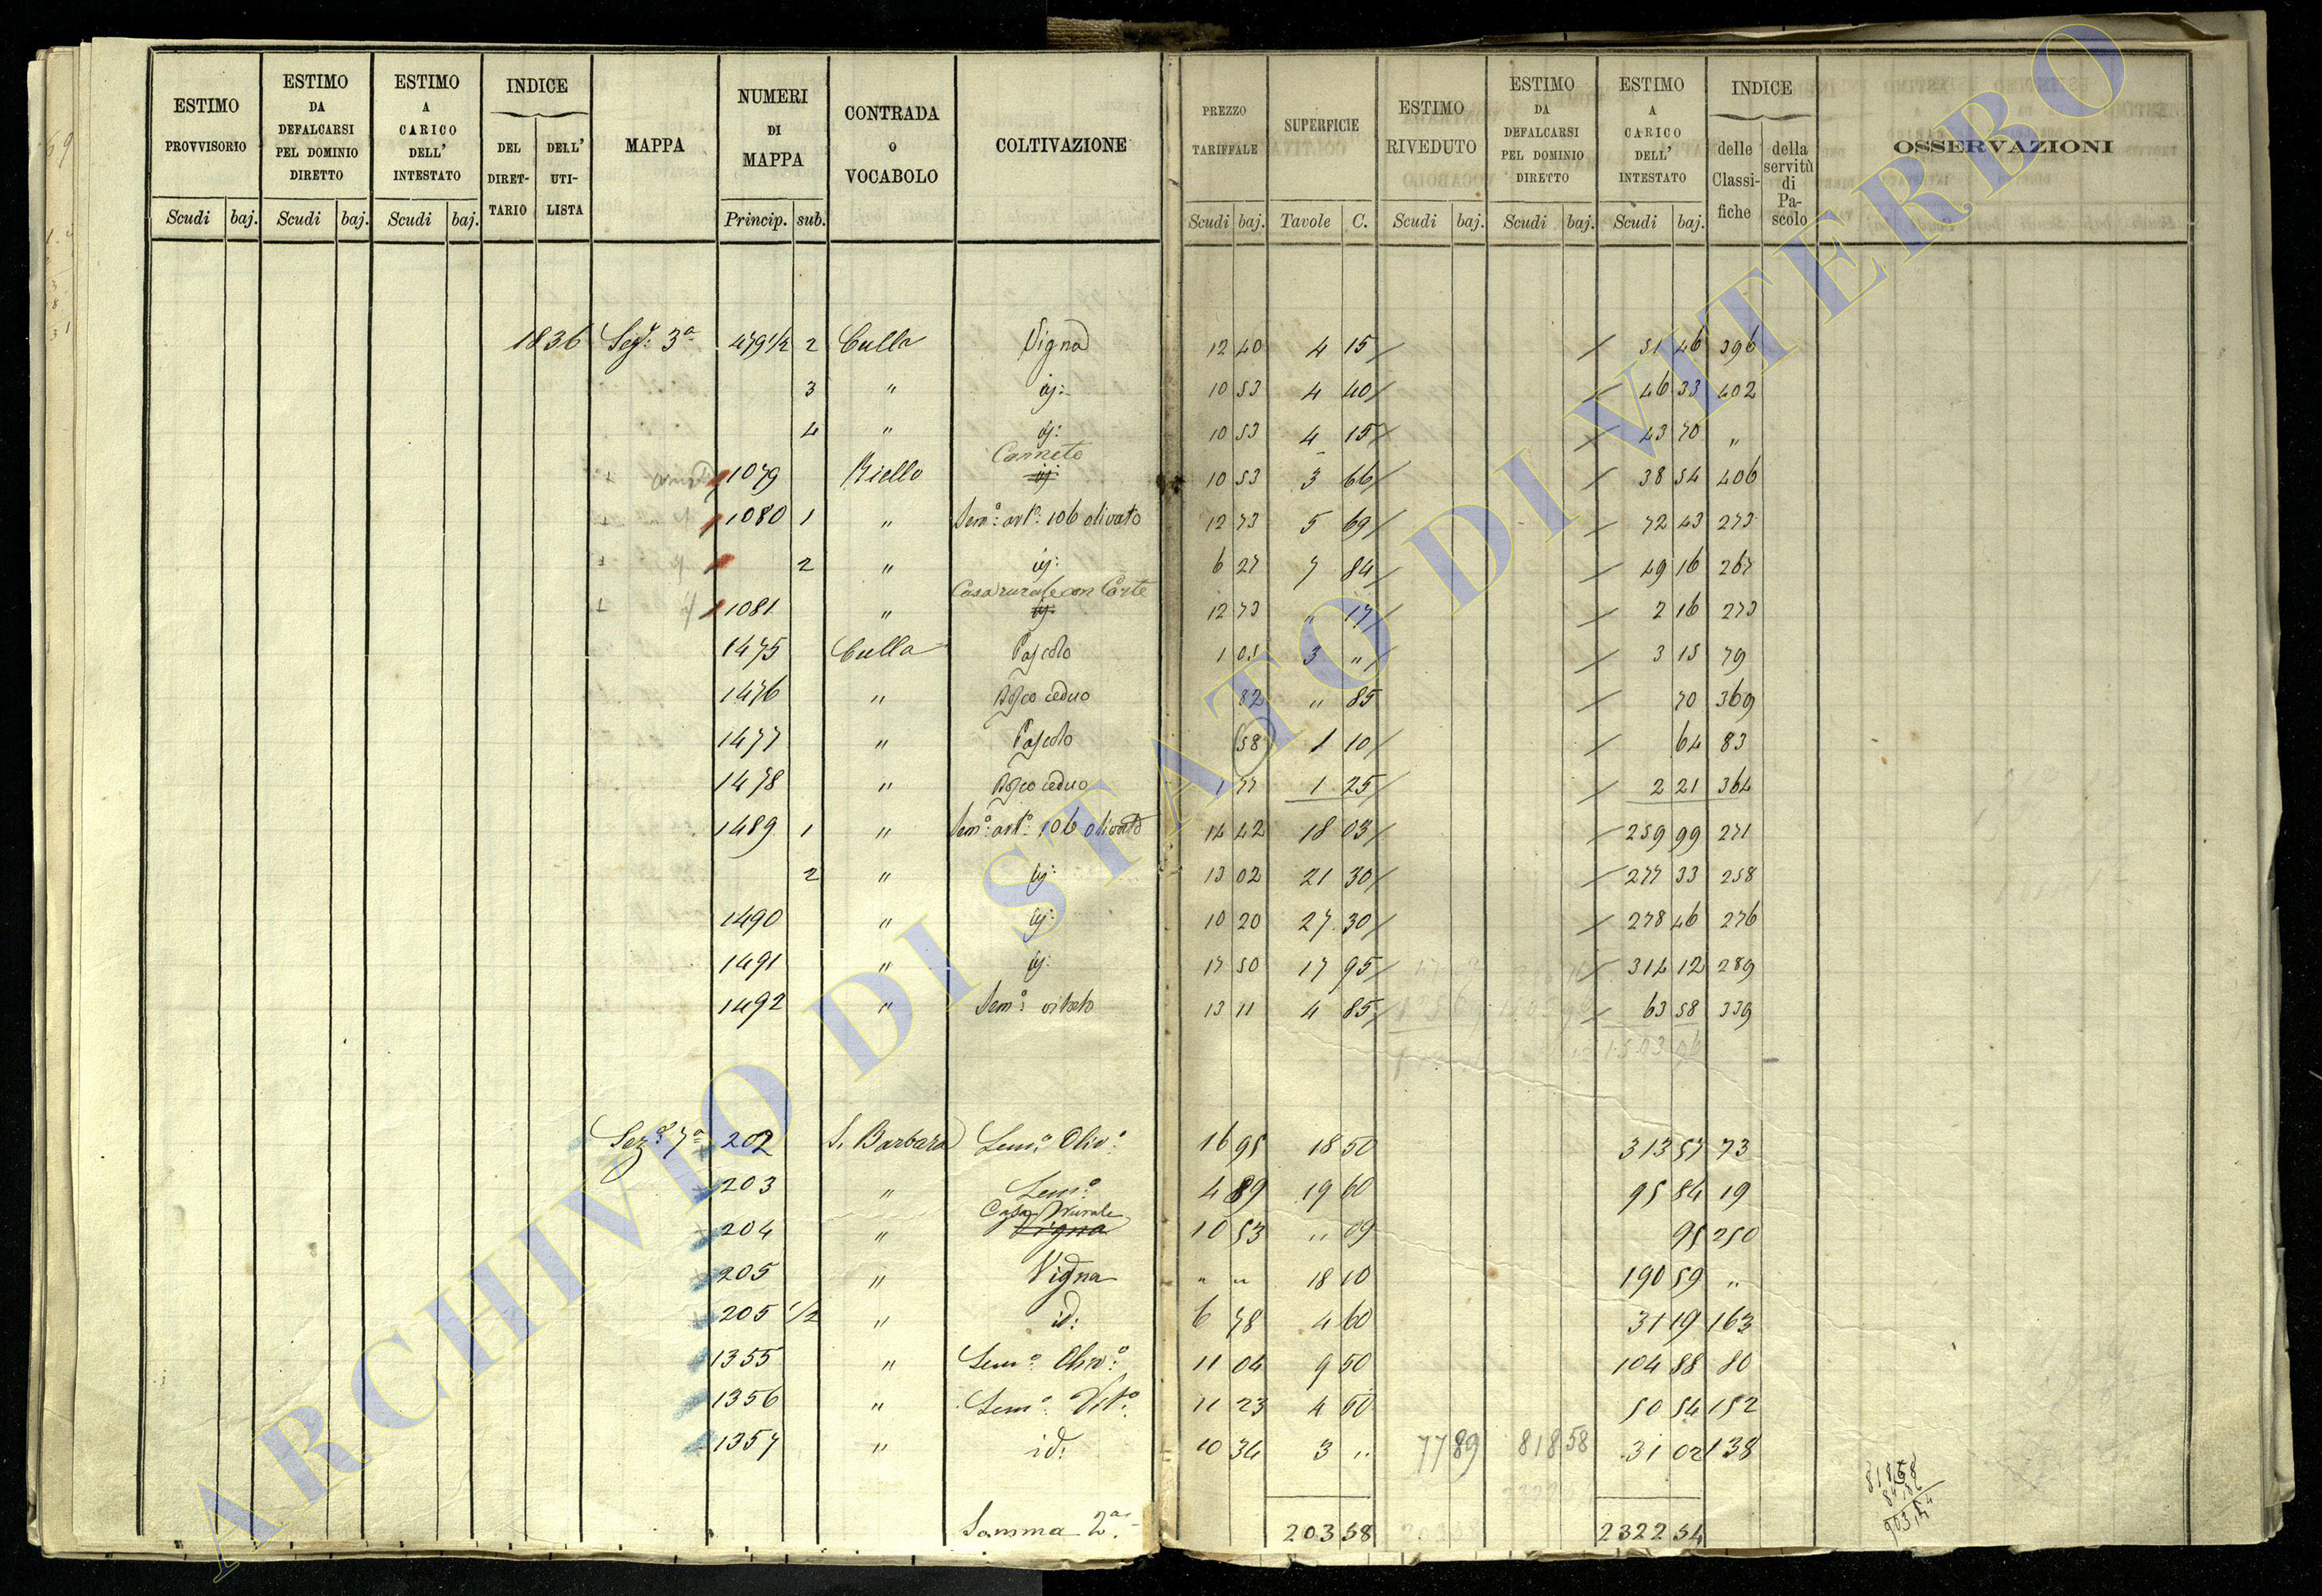 ESTIMO PROVVISORIO
ESTIMO DA DEFALCARSI PEL DOMINIO DIRETTO
ESTIMO A CARICO DELL' INTESTATO
INDICE
DEL DIRETTARIO
DELL' UTILISTA
MAPPA
NUMERI DI MAPPA
CONTRADA o VOCABOLO
COLTIVAZIONE
PREZZO TARIFFALE
SUPERFICIE
ESTIMO RIVEDUTO
ESTIMO DA DEFALCARSI PEL DOMINIO DIRETTO
ESTIMO A CARICO DELL' INTESTATO
INDICE
delle Classifiche
della servitù di Pascolo
OSSERVAZIONI
Scudi baj. Scudi baj. Scudi baj. Princip. sub. Scudi baj. Tavole C. Scudi baj. Scudi baj. Scudi baj.
1836 Sez: 3a 479 1/2 2 Culla Vigna 12 40 4 15 / / 51 46 396
3 " id: 10 53 4 40 / / 46 33 402
4 " id: 10 53 4 15 / / 43 70 "
Canneto
1079 Riello id 10 53 3 66 / / 38 54 406
1080 1 " Semo: arbo: 106 olivato 12 73 5 69 / / 72 43 273
2 " id: 6 27 7 84 / / 49 16 267
Casa rurale con Corte
1081 " id 12 73 " 17 / / 2 16 273
1475 Culla Pascolo 1 05 3 " / / 3 15 79
1476 " Bosco ceduo 82 " 85 / 70 369
1477 " Pascolo 58 1 10 / / 64 83
1478 " Bosco ceduo 1 77 1 25 / / 2 21 364
1489 1 " Semo: arbo: 106 olivato 14 42 18 03 / / 259 99 271
2 " id: 13 02 21 30 / / 277 33 258
1490 " id: 10 20 27 30 / / 278 46 276
1491 " id: 17 50 17 95 / / 314 12 289
1492 " Semo: vitato 13 11 4 85 / / 63 58 339
1503 06
Seze 7a 202 S. Barbara Semo Olivo: 16 95 18 50 313 57 73
203 " Semo 4 89 19 60 95 84 19
Casa Rurale
204 " Vigna 10 53 " 09 95 250
205 " Vigna " " 18 10 190 59 "
205 1/2 " id: 6 78 4 60 31 19 163
1355 " Semo Olivo: 11 04 9 50 104 88 80
1356 " Semo Vito: 11 23 4 50 50 54 152
1357 " id: 10 34 3 " 77 89 818 58 31 02 138
Somma 2a 203 58 2322 54
818 58
ARCHIVIO DI STATO DI VITERBO